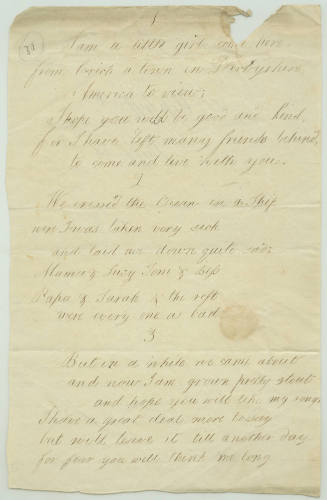 1
30
I am a little girl come here
from Crich a town in Derbyshire
America to view;
I hope you will be good and kind
for I have left many friends behind
to come and live with you.
We crossed the Ocean on a Ship
I was taken very sick
and laid me down quite sad;
Mama & Suzy Tom & Liss
Papa & Sarah & the rest
were every one as bad
3
But in a while we came about
and now I am grown pretty stout
and hope you will like my song
I have a great deal more to say
but will leave it till another day
for fear you will think me long